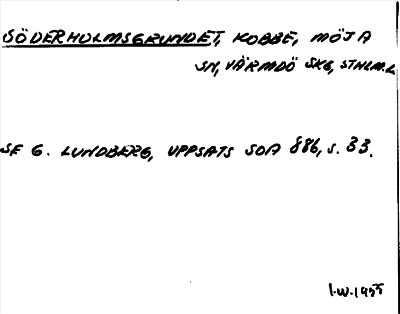 SÖDERHOLMSGRUNDET, KOBBE, MÖJA
SN, VÄRMDÖ SKG, STHLM.L
SE G. LUNDBERG, UPPSATS SOA 886, s. 33.
I.W. 1955